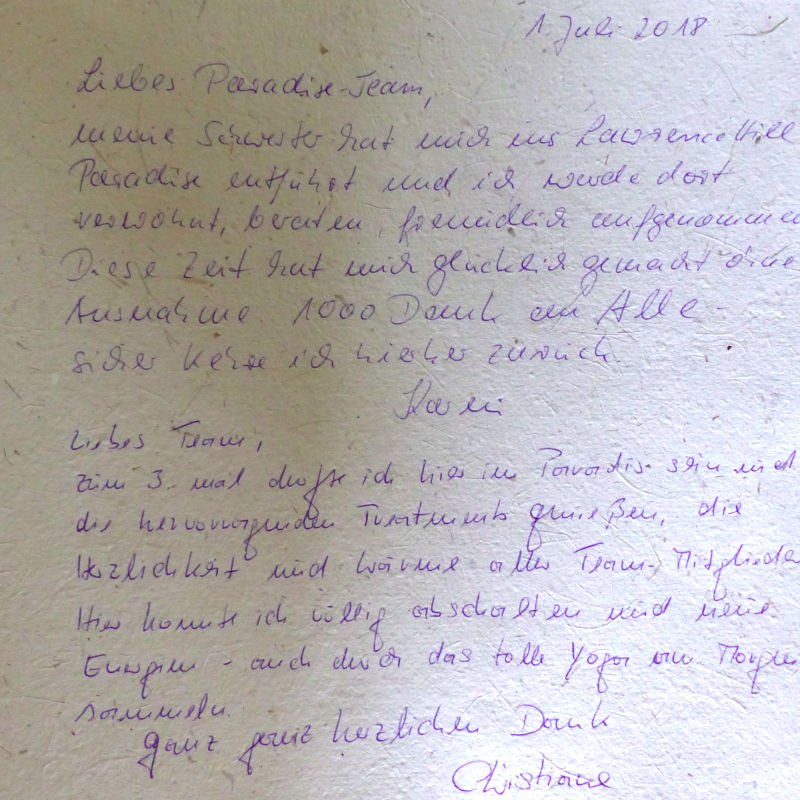 1. Juli 2018
Liebes Paradise-Team,
meine Schwester hat mich ins Lawrence Hill
Paradise entführt und ich wurde dort
verwöhnt, beraten, freundlich aufgenommen
Diese Zeit hat mich glücklich gemacht ohne
Ausnahme. 1000 Dank an Alle -
sicher kehre ich hierher zurück.
Karin
Liebes Team,
zum 3. mal durfte ich hier im Paradis sein und
die hervorragenden Treatments genießen, die
Herzlichkeit und Wärme aller Team-Mitglieder
Hier konnte ich völlig abschalten und neue
Energien - auch durch das tolle Yoga am Morgen
sammeln.
Ganz ganz herzlichen Dank
Christiane